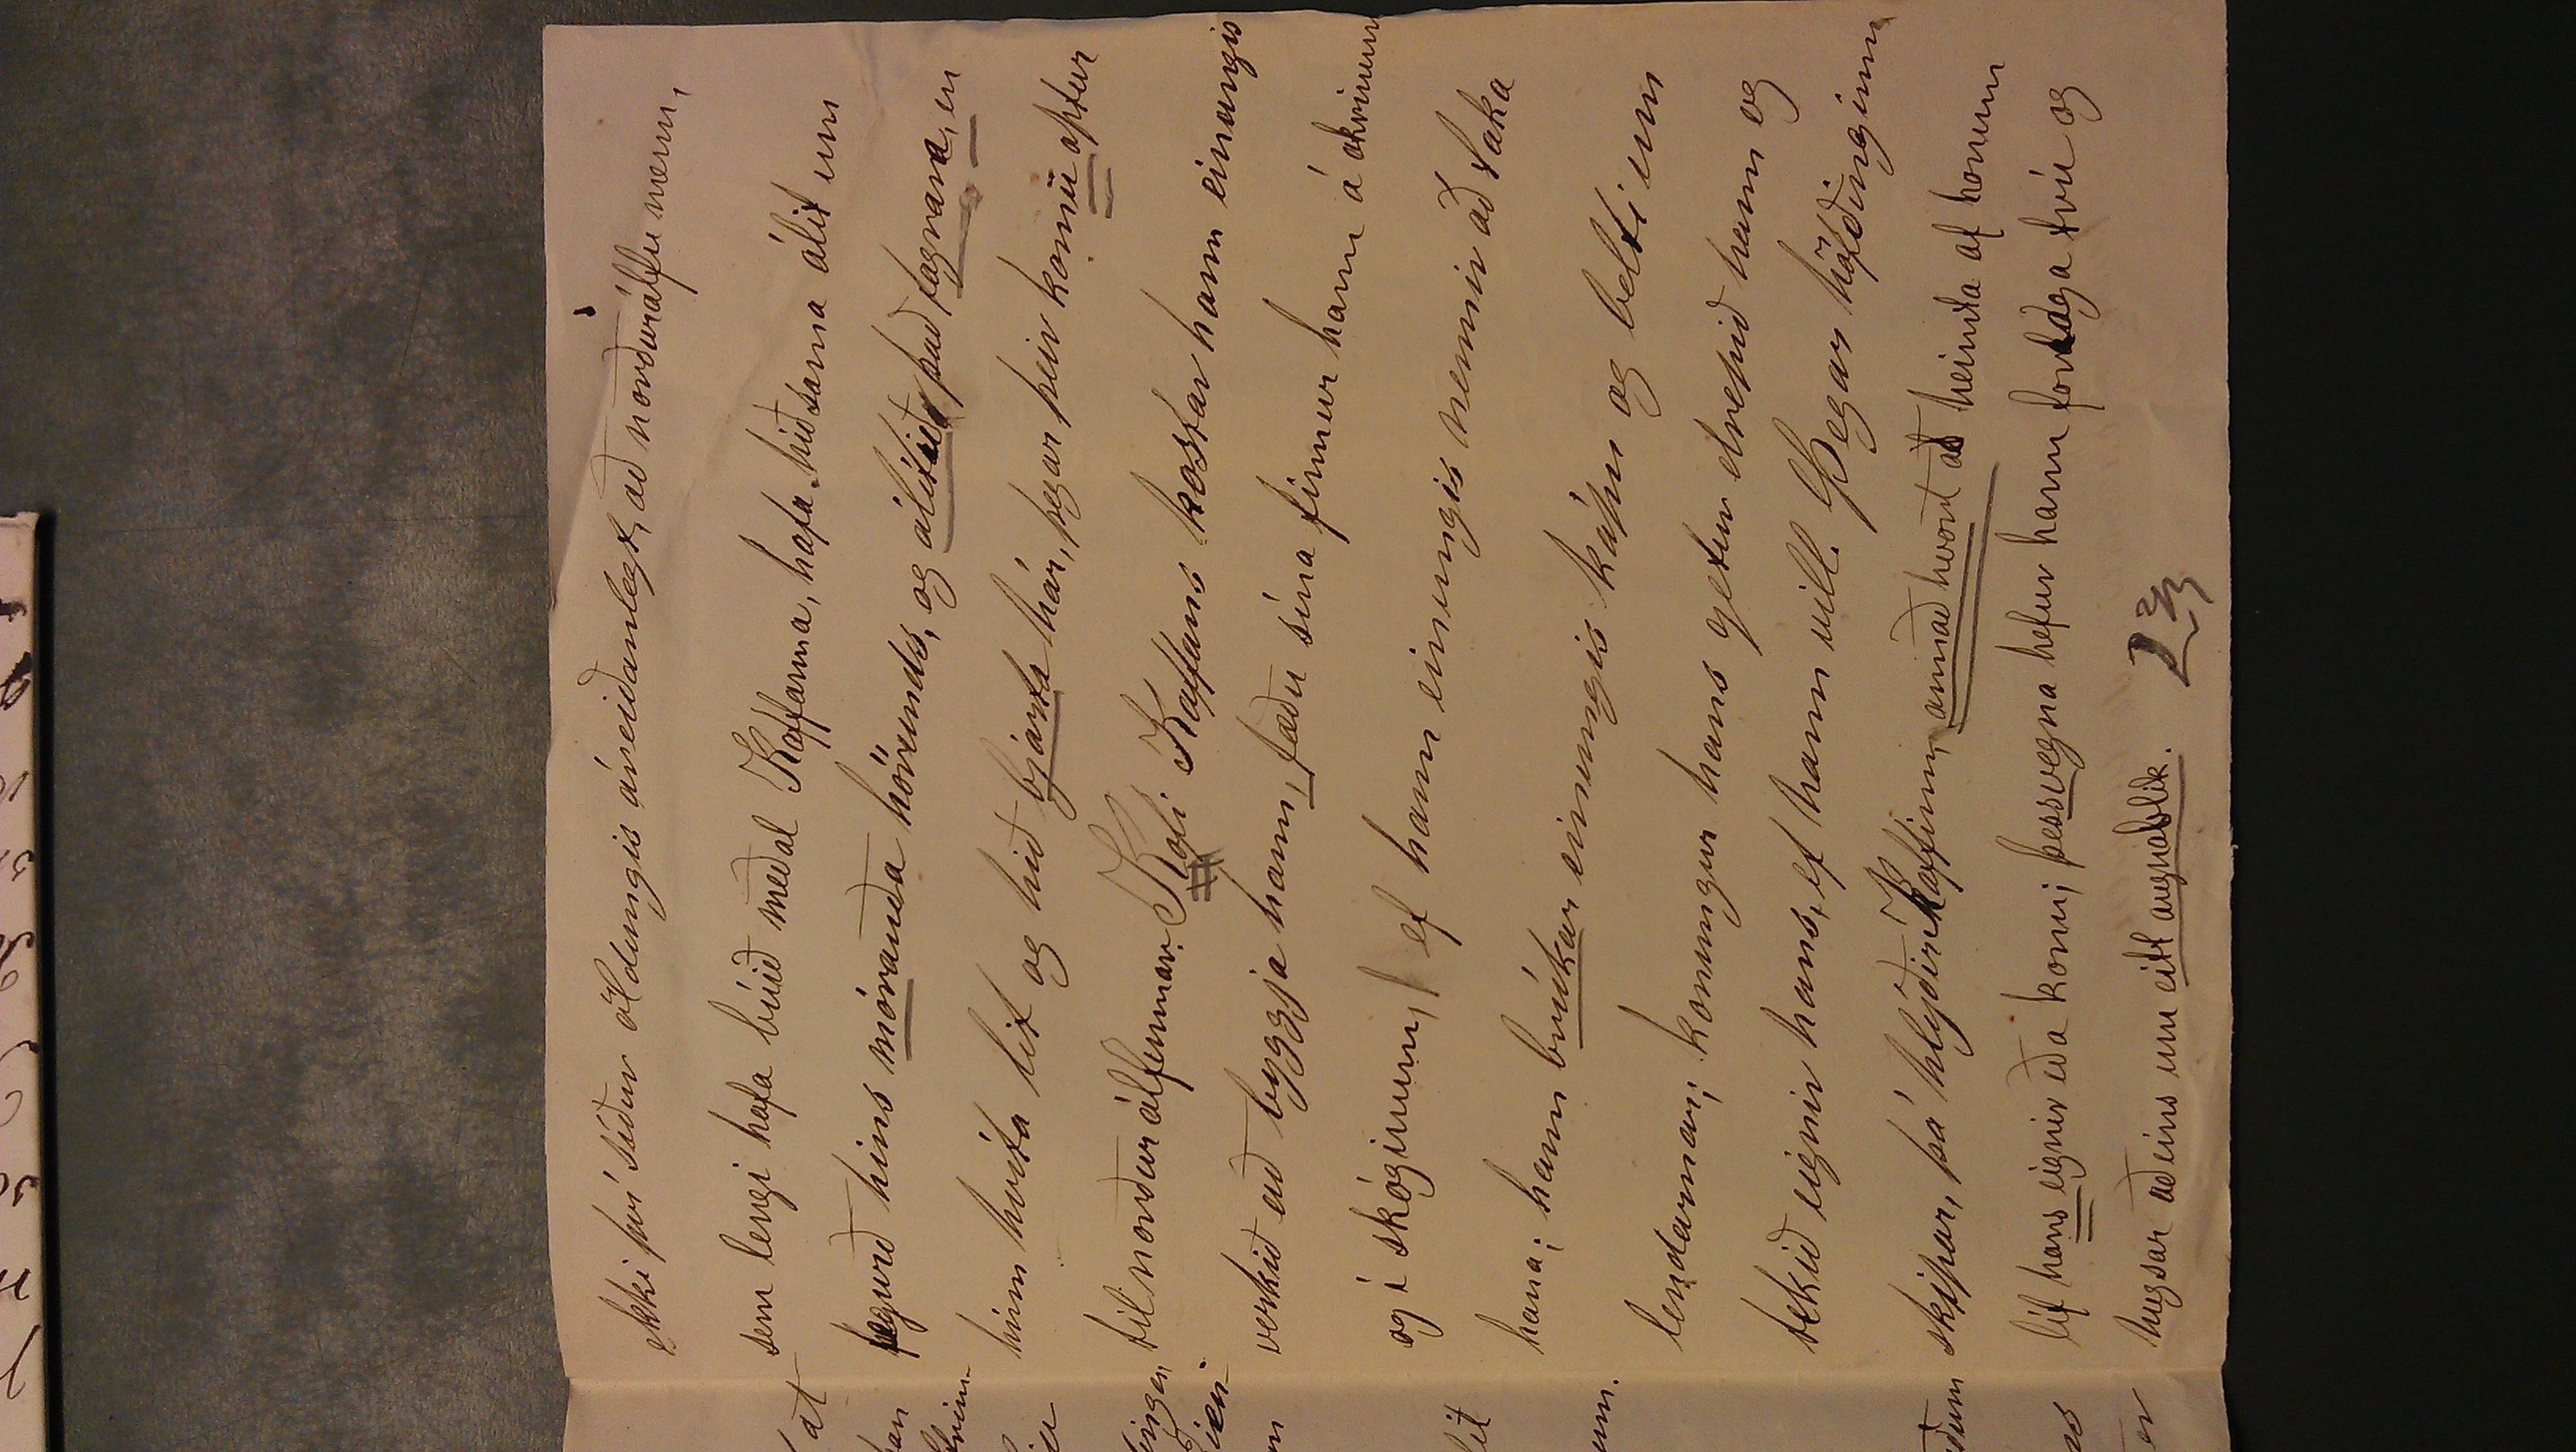 ekki því síður öldungis áreiðanlegt, að norðurálfu menn,
sem lengi hafa búið meðal Kaffanna, hafa hið sama álit um
fegurð hins mórauða hörunds, og álitið það fagrara, en
hinn hvíta lit og hið bjarta hár, þegar þeir komu aptur
til norðurálfunnar. Kofi Kaffans kostar hann einungis
verkið að byggja hann, fæðu sína finnur hann á akrinum
og í skóginum, ef hann einungis nennir að taka
hana; hann brúkar einungis kápu og belti um
lendarnar; konungur hans getur drepið hann og
tekið eignir hans, ef hann vill. Þegar höfðinginn
skipar, þá hlýðir Kaffinn, annað hvort að heimta af honum
líf hans eignir eða konu; þessvegna hefur hann forlaga trú og
hugsar aðeins um eitt augnablik.
at
lit
um.
er